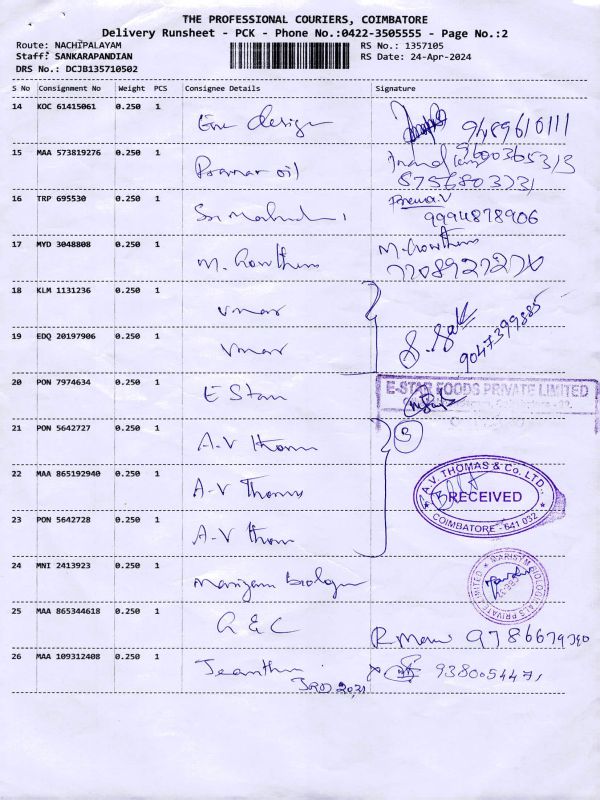 THE PROFESSIONAL COURIERS, COIMBATORE
Delivery Runsheet - PCK - Phone No.:0422-3505555 - Page No.:2
Route: NACHIPALAYAM RS No.: 1357105
Staff: SANKARAPANDIAN RS Date: 24-Apr-2024
DRS No.: DCJB135710502
S No Consignment No Weight PCS Consignee Details Signature
14 KOC 61415061 0.250 1 design 9489610111
15 MAA 573819276 0.250 1 oil Anand 9600365313
8756803731
16 TRP 695530 0.250 1 Sri Prema.V
9994878906
17 MYD 3048808 0.250 1 M. Gowtham M. Gowtham
18 KLM 1131236 0.250 1 Vmar
19 EDQ 20197906 0.250 1 Vmar 9047399885
20 PON 7974634 0.250 1 E Star E-STAR FOODS PRIVATE LIMITED
21 PON 5642727 0.250 1 A.V Thomas
22 MAA 865192940 0.250 1 A.V Thomas A.V. THOMAS & Co. LTD.,
RECEIVED
COIMBATORE - 641 032
23 PON 5642728 0.250 1 A.V Thomas
24 MNI 2413923 0.250 1 MARISYM BIOLOGICALS PRIVATE LIMITED
25 MAA 865344618 0.250 1 R
26 MAA 109312408 0.250 1